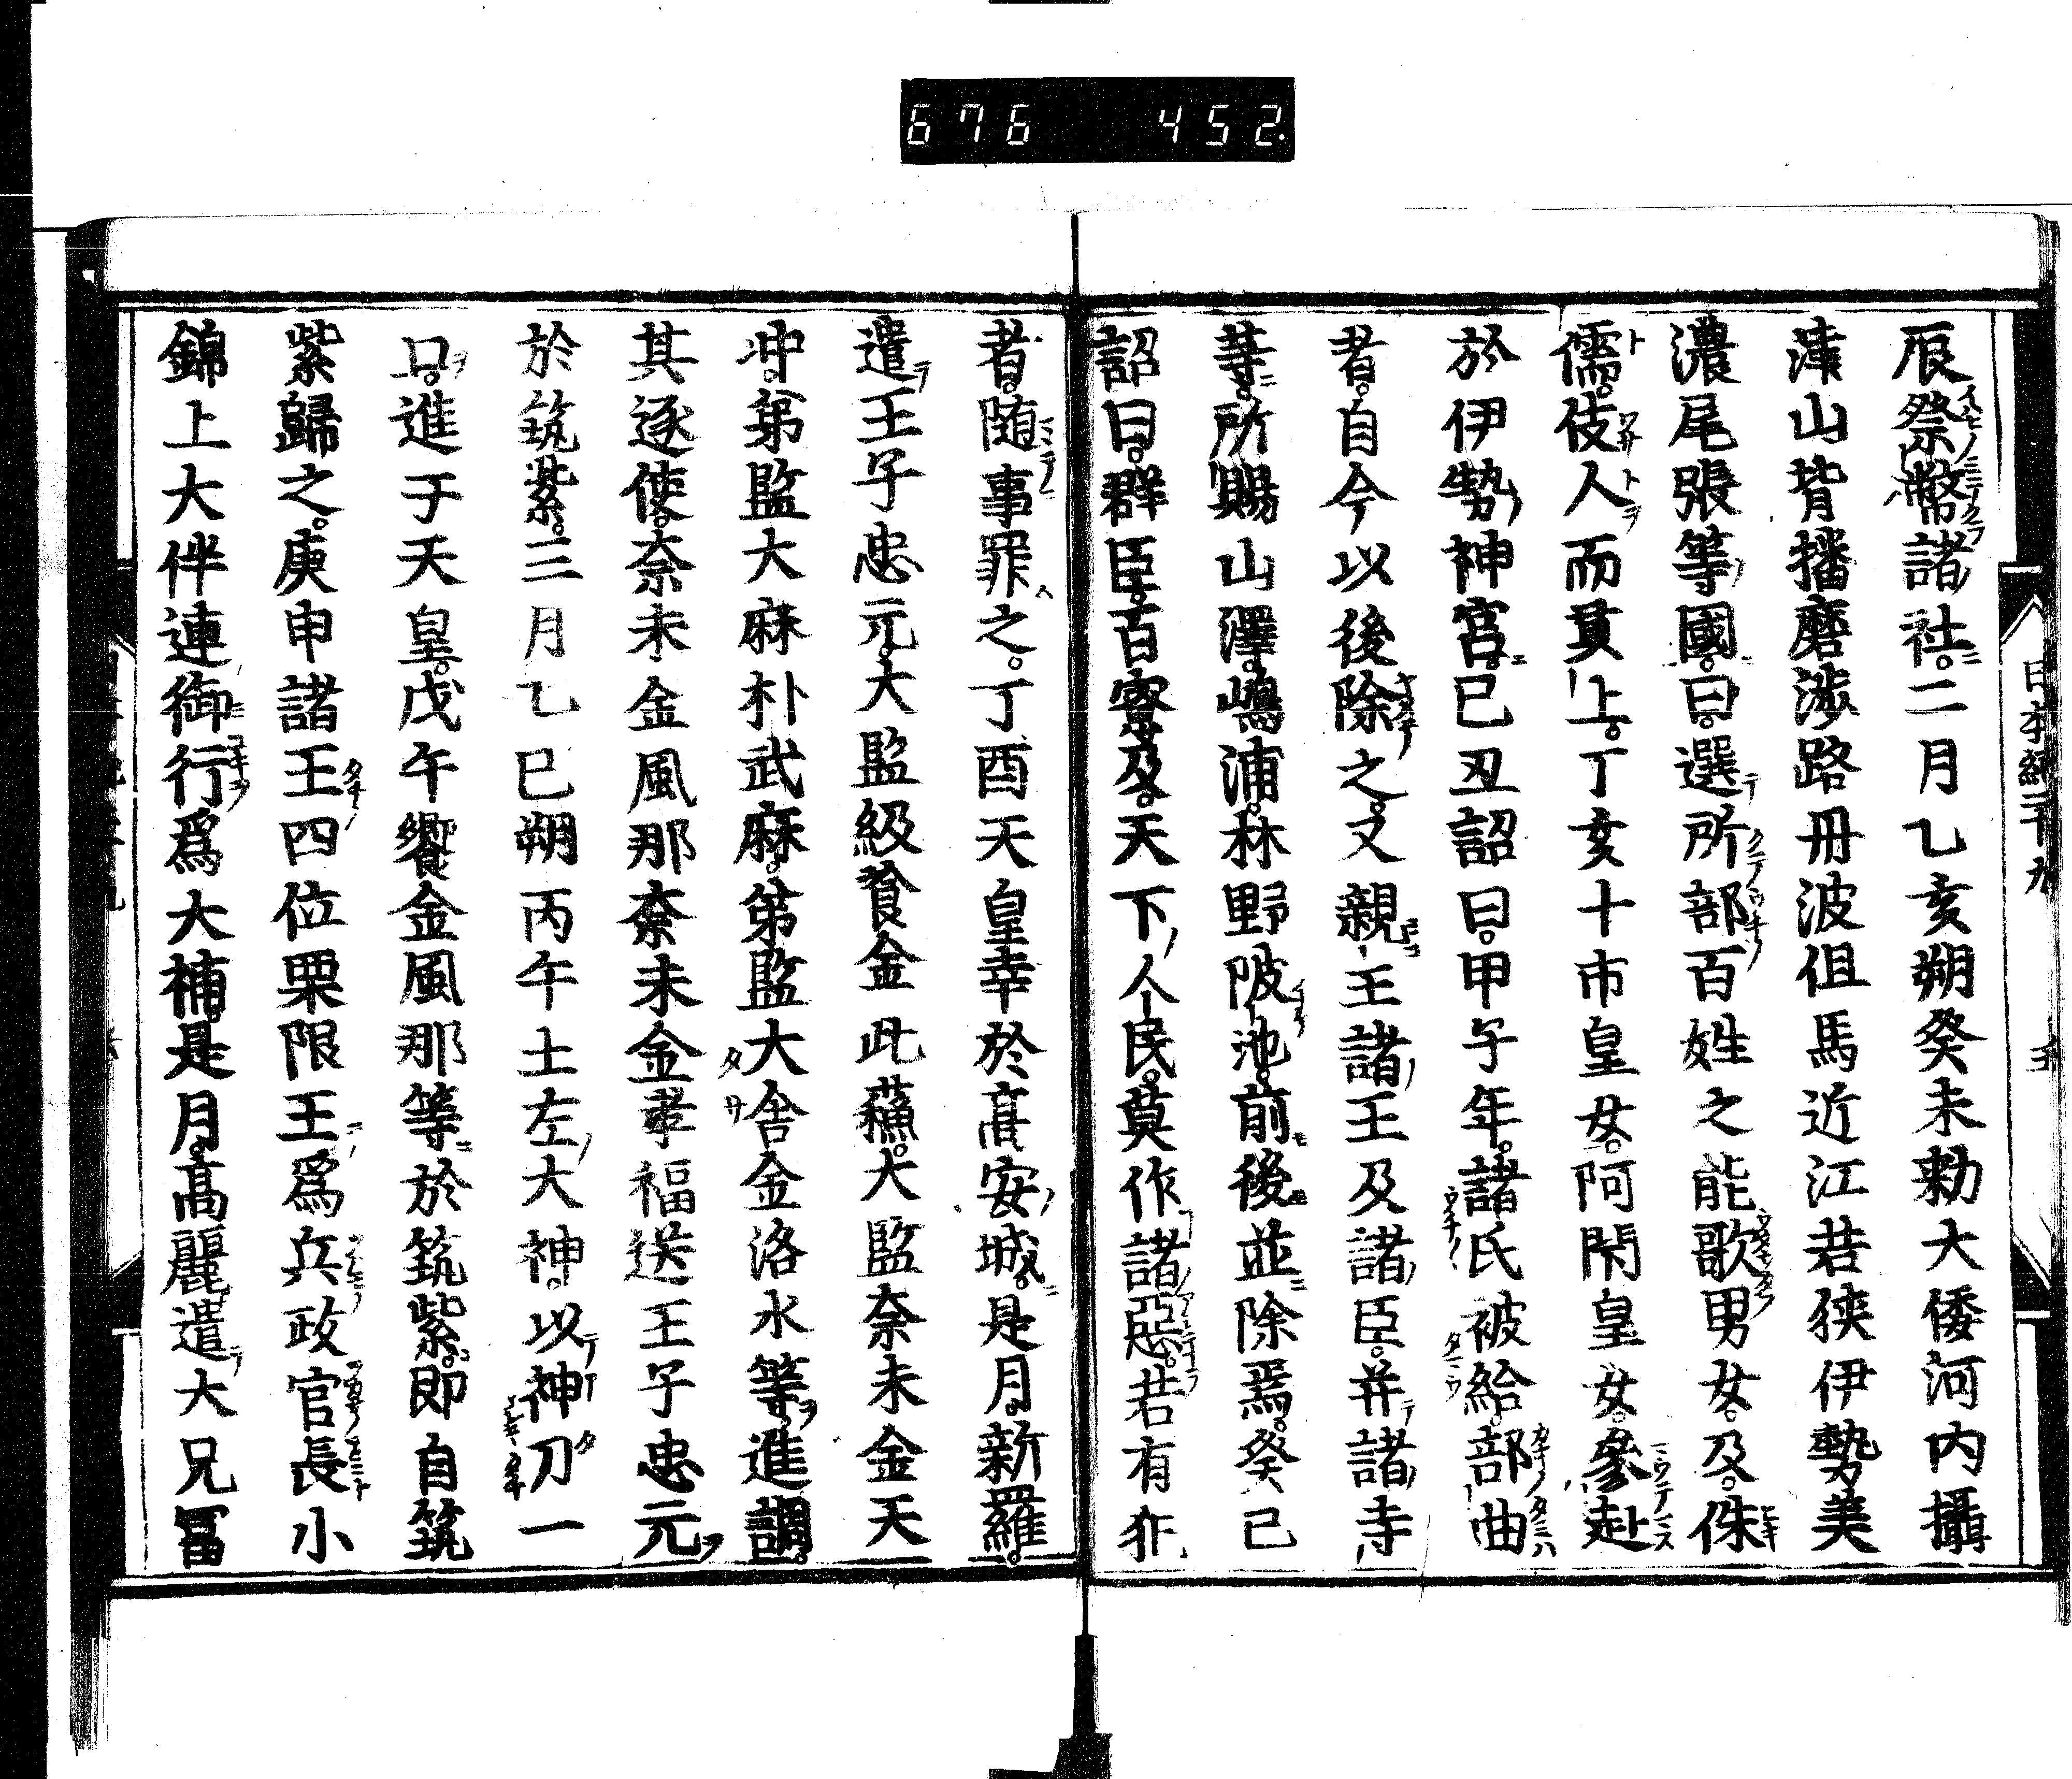 676 452
辰祭幣諸社。二月乙亥朔癸未勅大倭河内攝
津山背播磨淡路丹波但馬近江若狹伊勢美
濃尾張等國。曰。選所部百姓之能歌男女。及。侏
儒。伎人而貢上。丁亥十市皇女。阿閇皇女。參赴
於伊勢神宮。巳丑詔曰。甲子年。諸氏被給。部曲
者。自今以後除之。又親王諸王及諸臣。并諸寺
等。所賜山澤。嶋浦。林野陂池。前後並除焉。癸巳
詔曰。群臣。百寮及。天下人民。莫作諸惡。若有犯
者。随事罪之。丁酉天皇幸於髙安城。是月。新羅
遣王子忠元。大監級飡金此蘓。大監奈末金天
冲。第監大麻朴武麻。第監大舍金洛水等。進調。
其送使。奈末金風那奈末金孝福送王子忠元
於筑紫。三月乙巳朔丙午土左大神。以神刀一
口。進于天皇。戊午饗金風那等於筑紫。即自筑
紫歸之。庚申諸王四位栗隈王爲兵政官長小
錦上大伴連御行爲大輔。是月。髙麗遣大兄冨